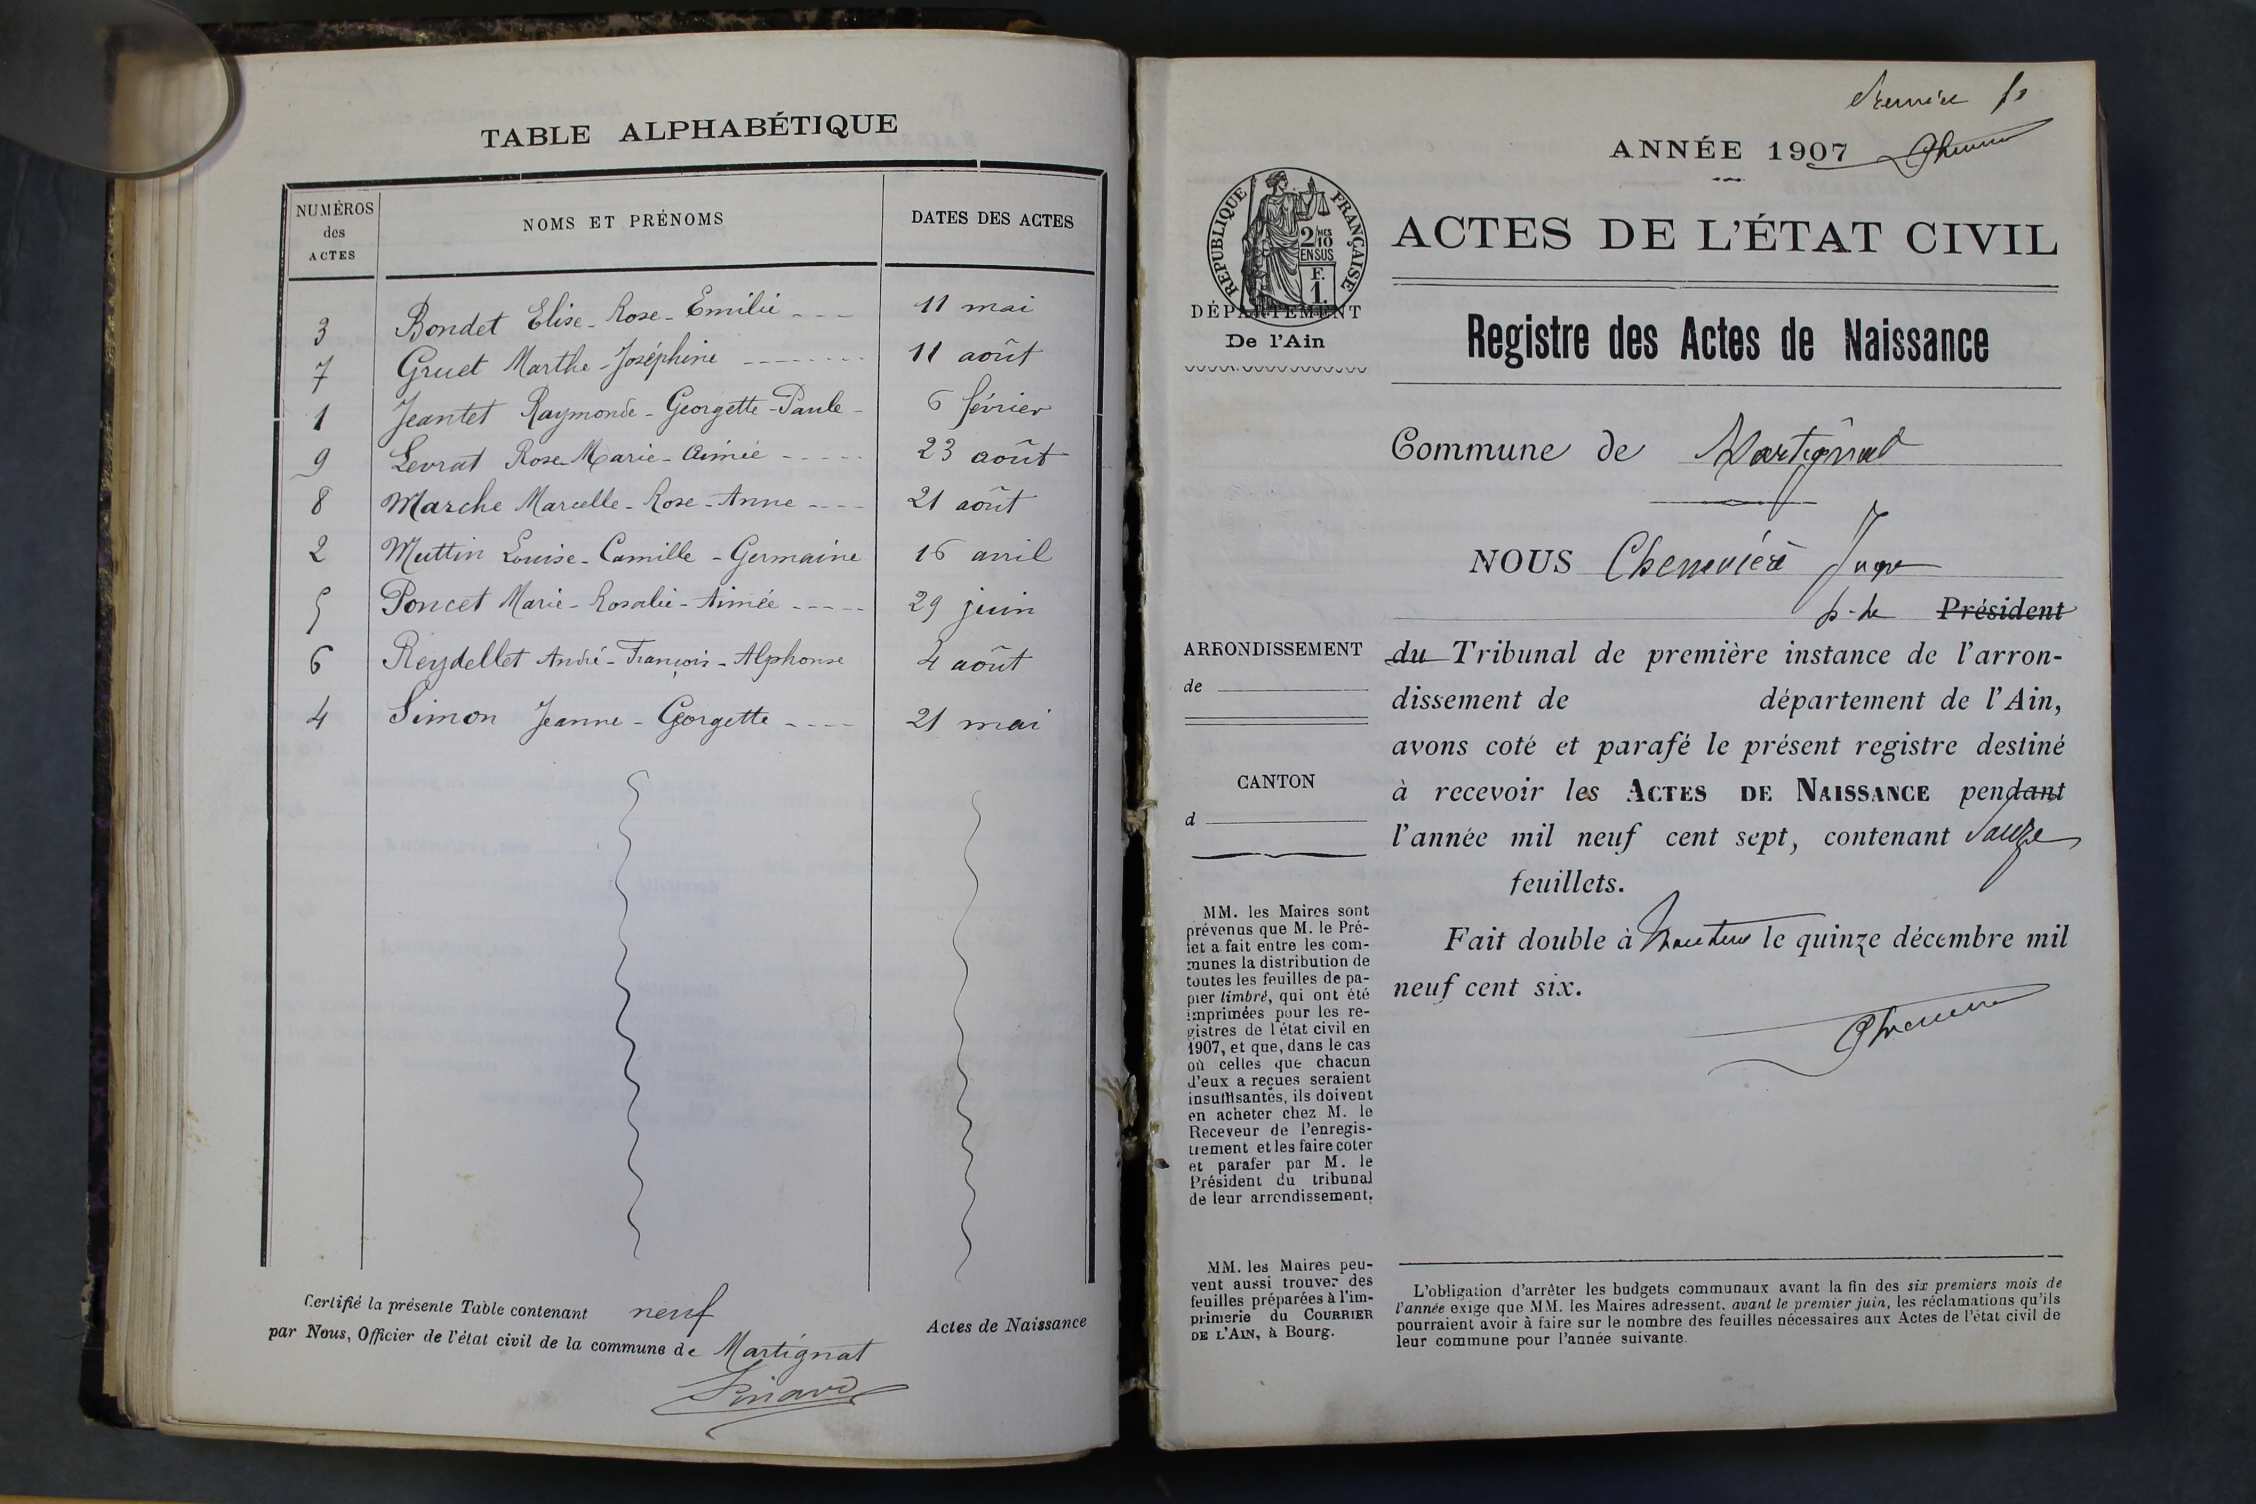 TABLE ALPHABÉTIQUE
NUMÉROS des ACTES
NOMS ET PRÉNOMS
DATES DES ACTES
3 Bondet Elise-Rose-Emilie --- 11 mai
7 Gruet Marthe-Joséphine -------- 11 août
1 Jeantet Raymonde-Georgette-Paule- 6 février
9 Levrat Rose Marie-Aimée ----- 23 août
8 Marche Marcelle-Rose-Anne ---- 21 août
2 Muttin Louise-Camille-Germaine 16 avril
5 Poncet Marie-Rosalie-Aimée ----- 29 juin
6 Reydellet André-François-Alphonse 4 août
4 Simon Jeanne-Georgette ---- 21 mai
Certifié la présente Table contenant neuf Actes de Naissance
par Nous, Officier de l'état civil de la commune de Martignat
ANNÉE 1907
RÉPUBLIQUE FRANÇAISE
2/10MES
EN SUS
F.
1.
ACTES DE L'ÉTAT CIVIL
DÉPARTEMENT
De l'Ain
Registre des Actes de Naissance
Commune de Martignat
NOUS Chenevière Juge
p. le Président
du Tribunal de première instance de l'arron-
dissement de département de l'Ain,
avons coté et parafé le présent registre destiné
à recevoir les ACTES DE NAISSANCE pendant
l'année mil neuf cent sept, contenant
feuillets.
Fait double à Nantua le quinze décembre mil
neuf cent six.
ARRONDISSEMENT
de
CANTON
d
MM. les Maires sont
prévenus que M. le Pré-
fet a fait entre les com-
munes la distribution de
toutes les feuilles de pa-
pier timbré, qui ont été
imprimées pour les re-
gistres de l'état civil en
1907, et que, dans le cas
où celles que chacun
d'eux a reçues seraient
insuffisantes, ils doivent
en acheter chez M. le
Receveur de l'enregis-
trement et les faire coter
et parafer par M. le
Président du tribunal
de leur arrondissement.
MM. les Maires peu-
vent aussi trouver des
feuilles préparées à l'im-
primerie du COURRIER
DE L'AIN, à Bourg.
L'obligation d'arrêter les budgets communaux avant la fin des six premiers mois de
l'année exige que MM. les Maires adressent, avant le premier juin, les réclamations qu'ils
pourraient avoir à faire sur le nombre des feuilles nécessaires aux Actes de l'état civil de
leur commune pour l'année suivante.